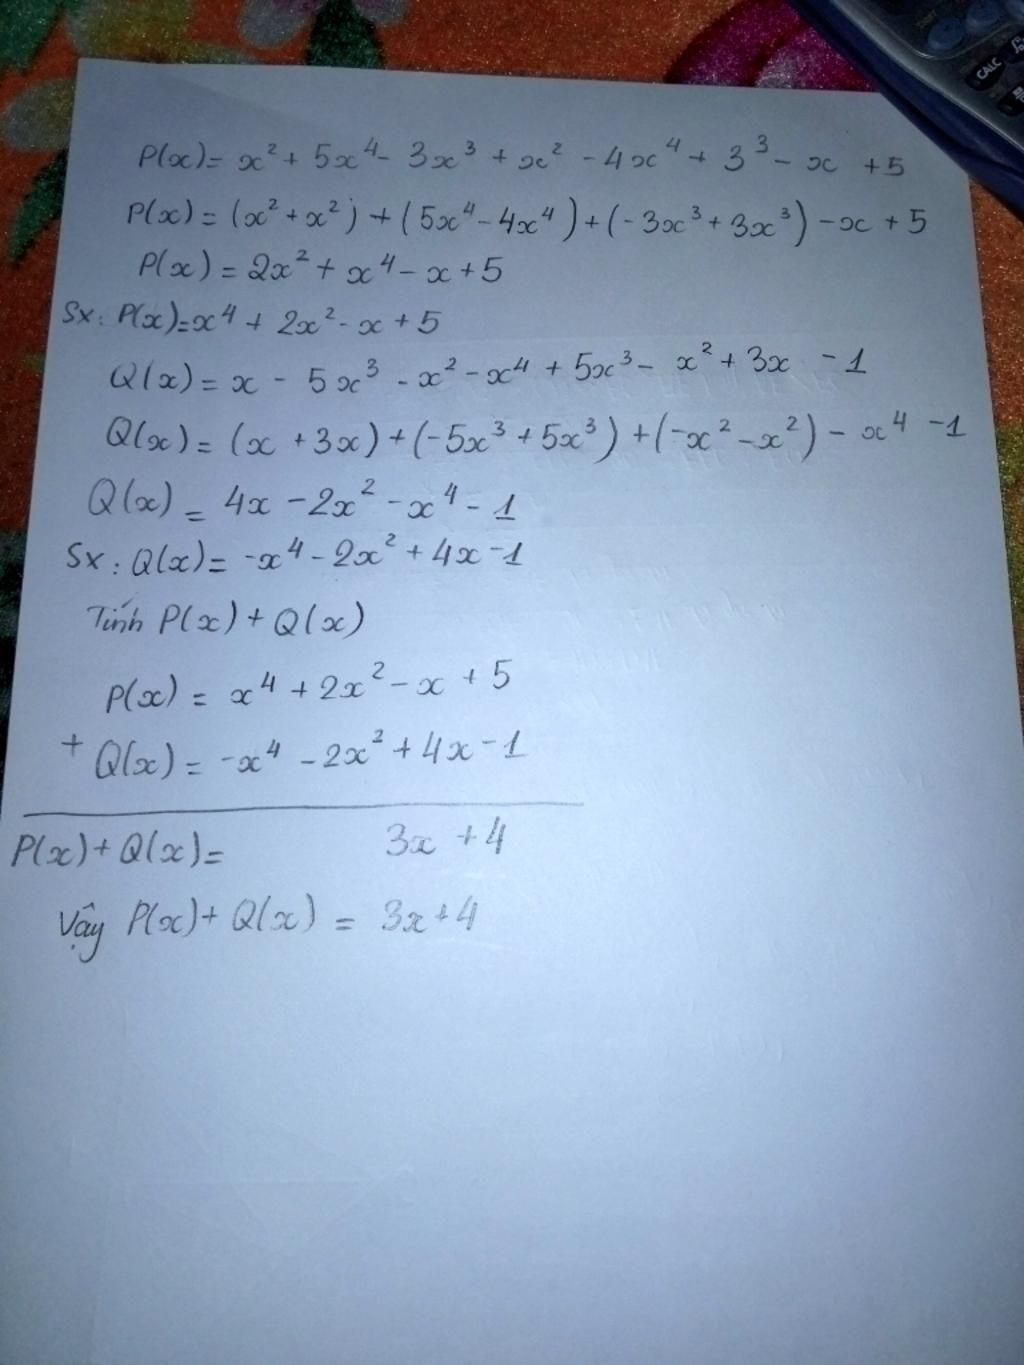 CALC
P(x) = x² + 5x⁴ - 3x³ + x² - 4x⁴ + 3³ - x + 5
P(x) = (x² + x²) + (5x⁴ - 4x⁴) + (-3x³ + 3x³) - x + 5
P(x) = 2x² + x⁴ - x + 5
Sx: P(x) = x⁴ + 2x² - x + 5
Q(x) = x - 5x³ - x² - x⁴ + 5x³ - x² + 3x - 1
Q(x) = (x + 3x) + (-5x³ + 5x³) + (-x² - x²) - x⁴ - 1
Q(x) = 4x - 2x² - x⁴ - 1
Sx: Q(x) = -x⁴ - 2x² + 4x - 1
Tính P(x) + Q(x)
P(x) = x⁴ + 2x² - x + 5
+ Q(x) = -x⁴ - 2x² + 4x - 1
P(x) + Q(x) = 3x + 4
Vậy P(x) + Q(x) = 3x + 4